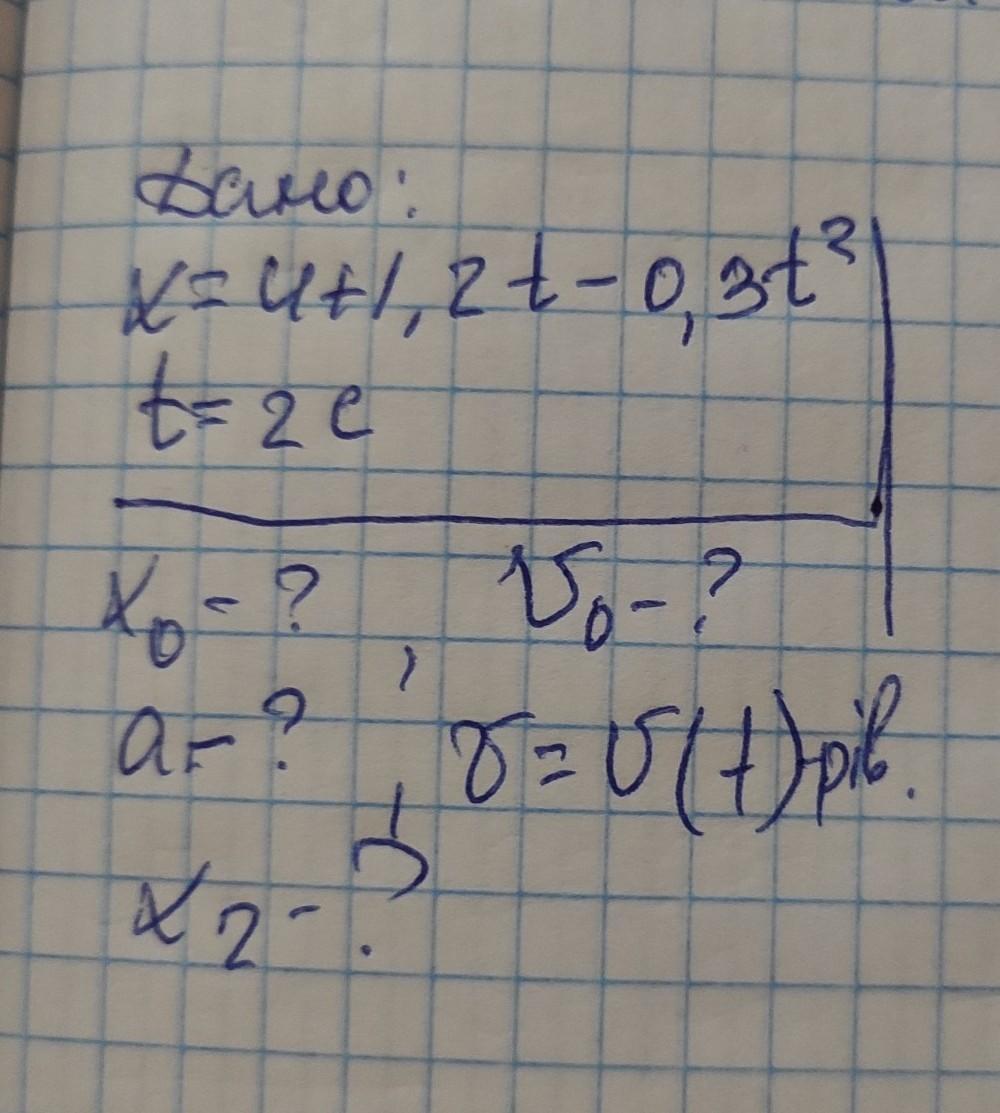 Дано:
x=4+1,2t-0,3t²
t=2c
x₀-? , v₀-?
a-? , v=v(t)-рів.
x₂-?